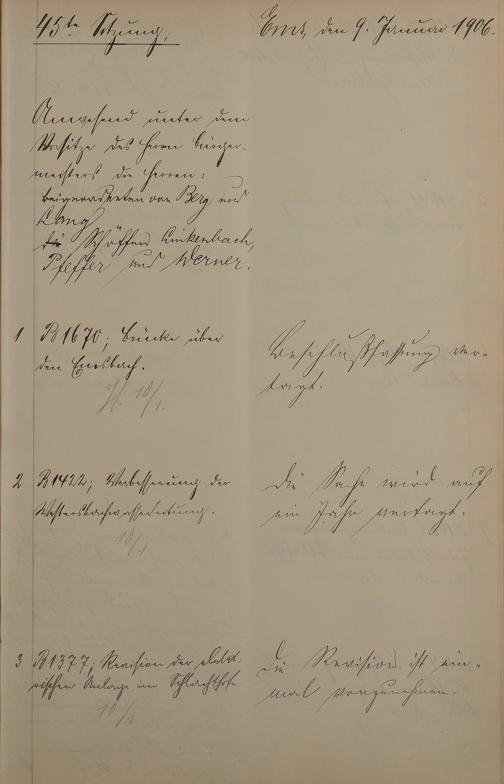 45te Sitzung.
Ems, den 9. Januar 1906.
Anwesend unter dem
Vorsitze des Herrn Bürger-
meisters die Herren:
Beigeordneten von Berg und
Lang
die Schöffen Linkenbach,
Pfeffer und Werner.
1 B1670; Brücke über
den Emsbach.
H. 10/1.
Beschlußfassung ver-
tagt.
2 B1422; Verbesserung der
10/1
Die Sache wird auf
ein Jahr vertagt.
3 B1377; Revision der elekt-
rischen Anlage im Schlachthofe
10/1
Die Revision ist ein-
mal vorzunehmen.